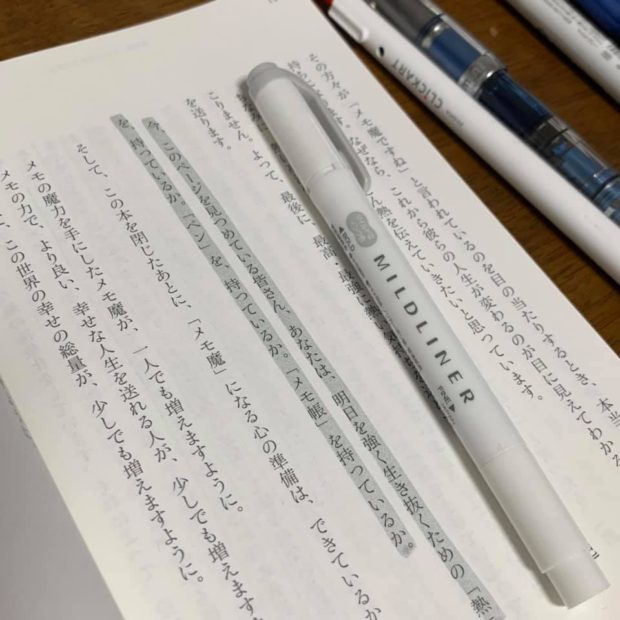 その方々が「メモ魔ですね」と言われているのを目の当たりするとき、本当
持ち
なぜなら、これから彼らの人生が変わるのが目に見えてわか
こりません。よって、最後に、最高・最強に熱い
熱を伝えていきたいと思っています。
を送ります。
今、このページを見つめている皆さん、あなたは、明日を強く生き抜くための「熱
を、持っているか。「ペン」を、持っているか。「メモ帳」を持っているか。
そして、この本を閉じたあとに、「メモ魔」になる心の準備は、できているか
メモの魔力を手にしたメモ魔が、一人でも増えますように。
メモの力で、より良い、幸せな人生を送れる人が、少しでも増えます
この世界の幸せの総量が、少しでも増えますように。
MILDLINER
CLICKART